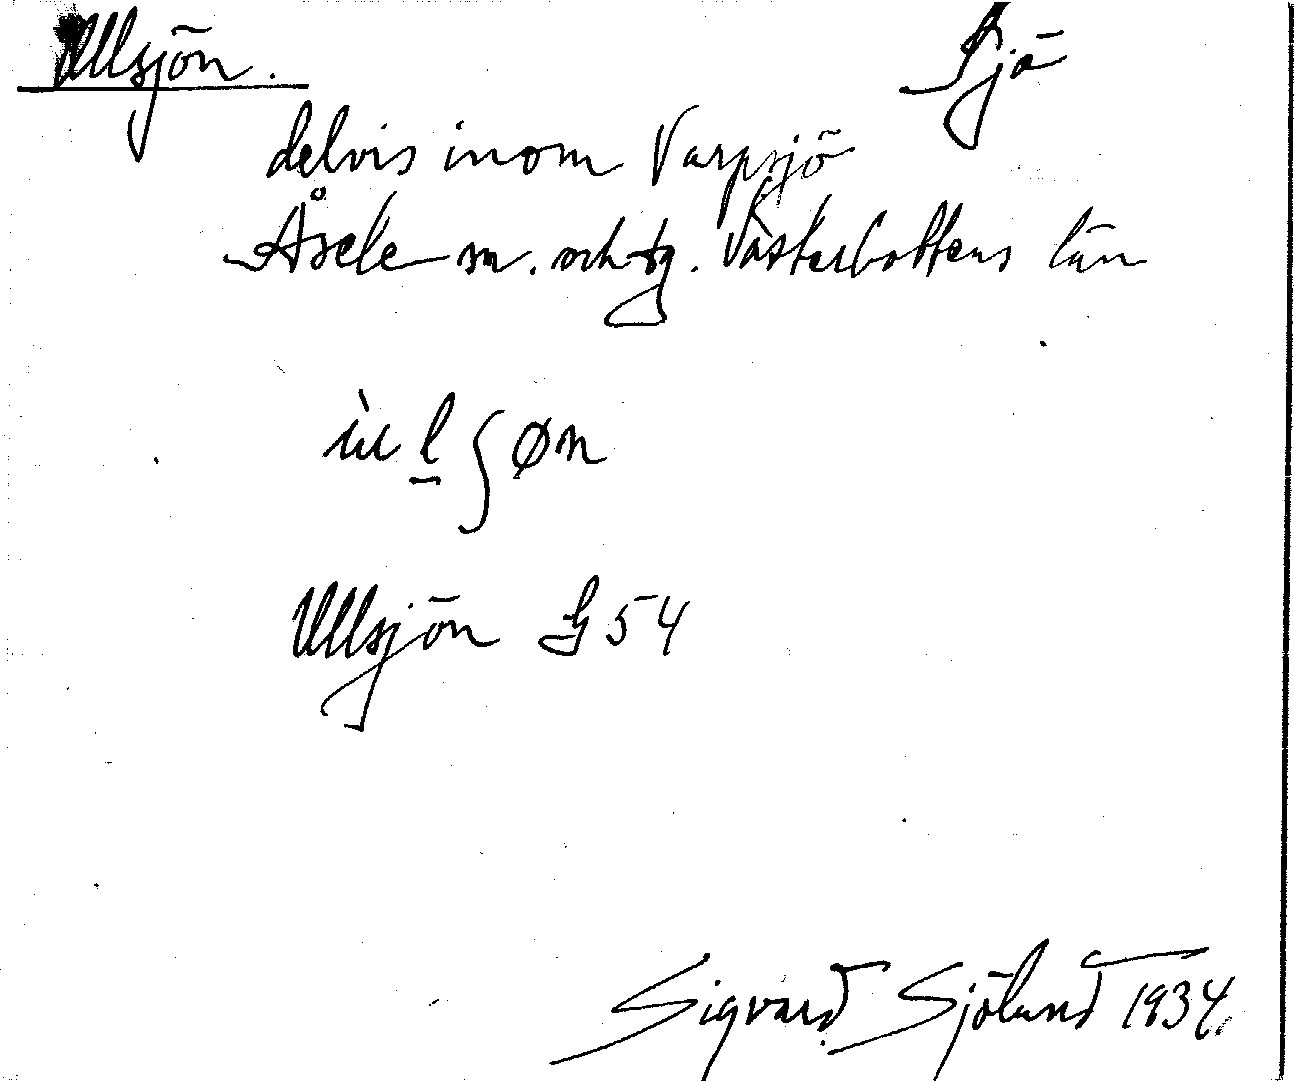 Ullsjön. Sjö
delvis inom Varpsjö
Åsele sn. och tg. Västerbottens län
Ullsjön G 54
Sigvard Sjölund 1934.